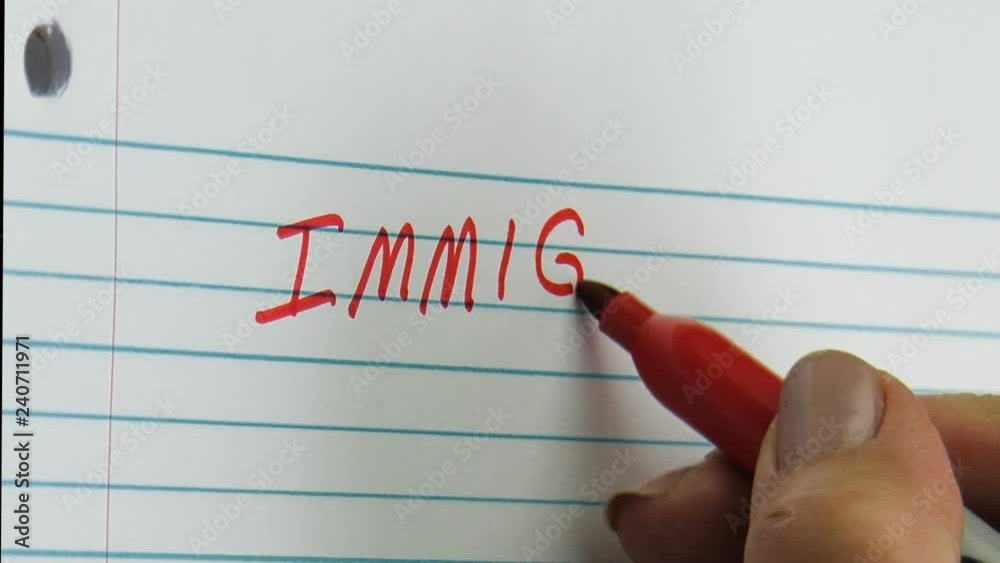 IMMIG
Adobe Stock | #240711971